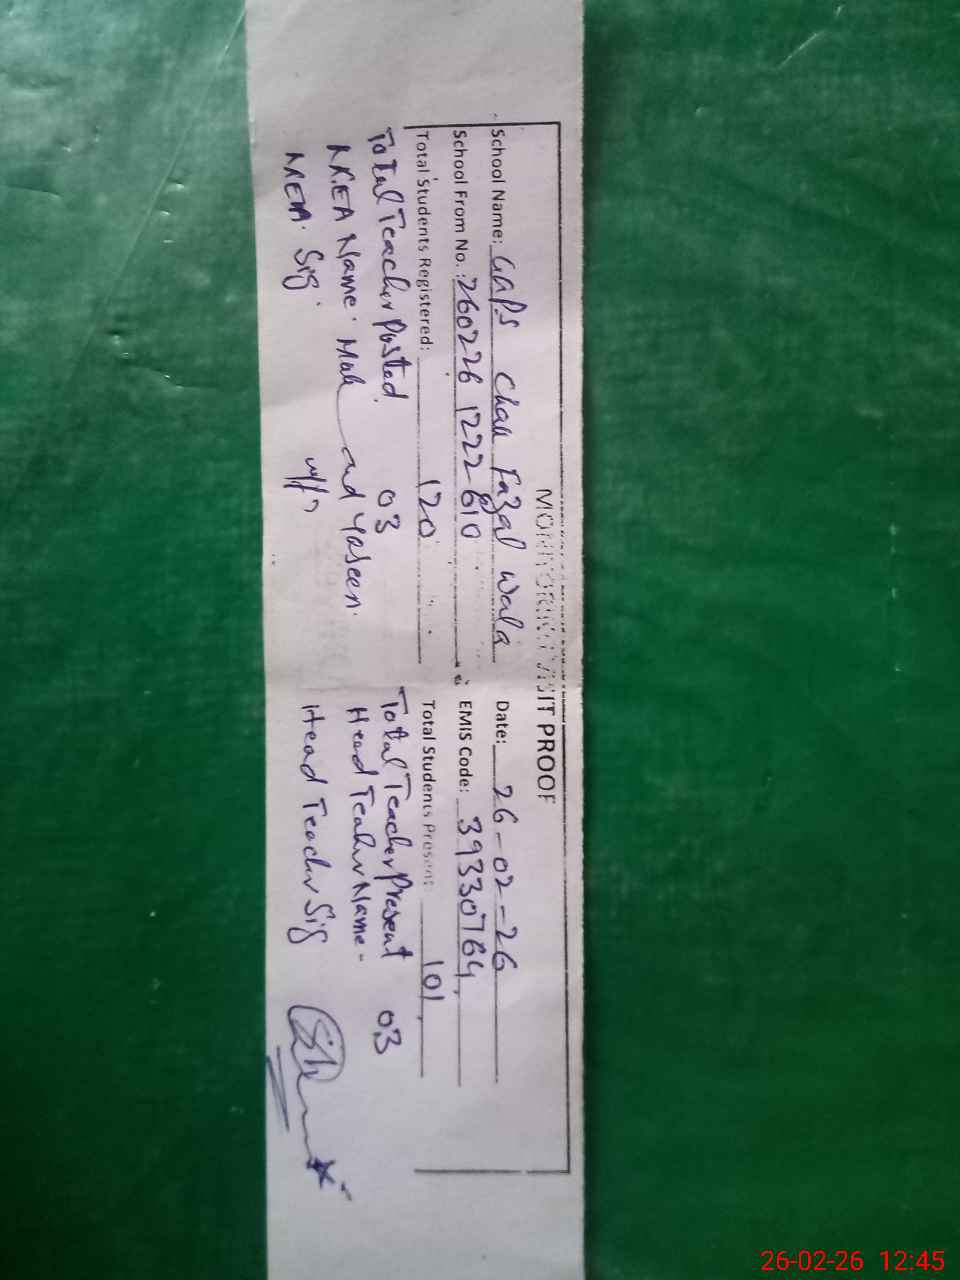 MONITORING VISIT PROOF
School Name: GAPS Chak Fazal Wala Date: 26-02-26
School From No.: 260226 1222 610 EMIS Code: 39330764
Total Students Registered: 120 Total Students Present: 101
Total Teacher Posted 03 Total Teacher Present 03
MEA Name: and Yaseen. Head Teacher Name-
MEA. Sig. Head Teacher Sig
26-02-26 12:45